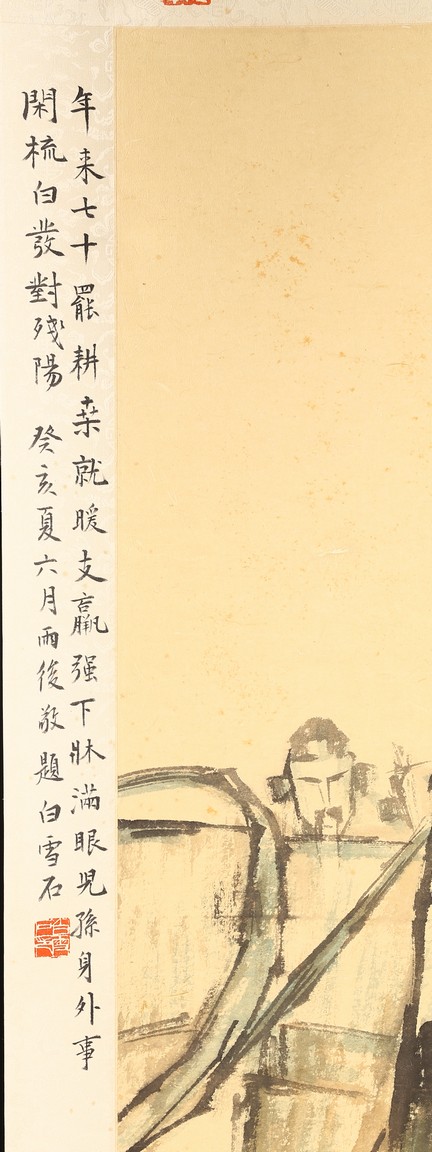 年来七十罷耕桒就暖支羸强下牀滿眼児孫身外事
閑梳白發對殘陽 癸亥夏六月雨後敬題白雪石